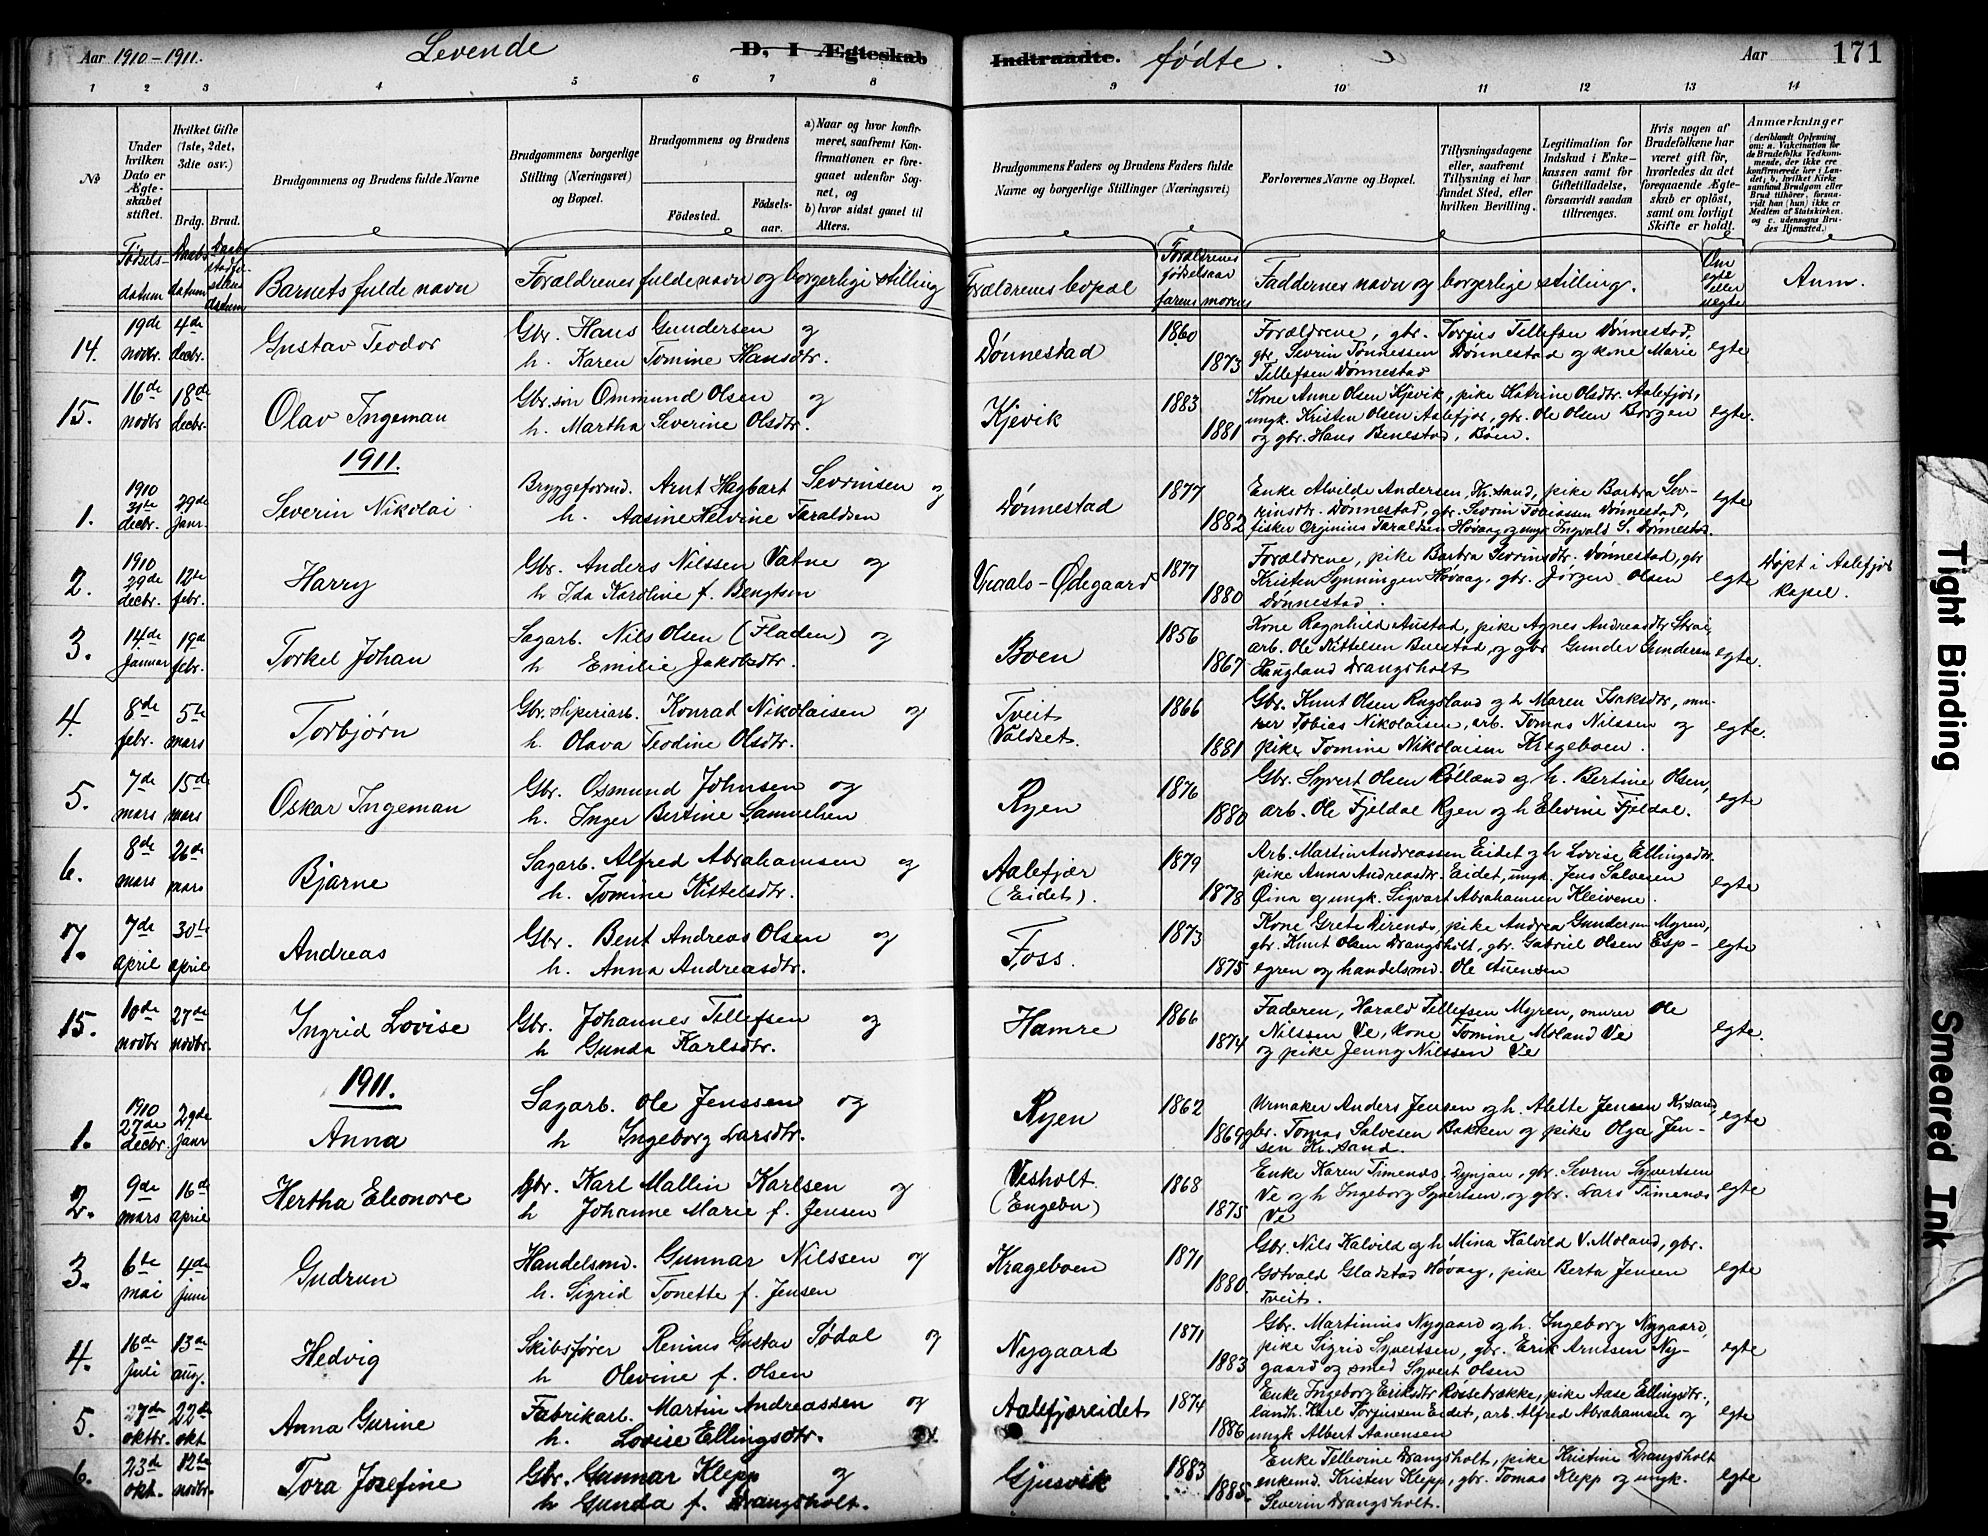 Aar 1910-1911. Levende D, I Ægteskab Indtraadte. fødte. Aar 171
1 2 3 4 5 6 7 8 9 10 11 12 13 14
№
Under hvilken Dato er Ægteskabet stiftet.
Hvilket Gifte (1ste, 2det, 3die osv.)
Brdg. Brud.
Brudgommens og Brudens fulde Navne
Brudgommens borgerlige Stilling (Næringsvei) og Bopæl.
Brudgommens og Brudens
Fødested. Fødselsaar.
a) Naar og hvor konfirmeret, saafremt Konfirmationen er foregaaet udenfor Sognet, og b) hvor sidst gaaet til Alters.
Brudgommens Faders og Brudens Faders fulde Navne og borgerlige Stillinger (Næringsvei)
Forlovernes Navne og Bopæl.
Tillysningsdagene eller, saafremt Tillysning ei har fundet Sted, efter hvilken Bevilling.
Legitimation for Indskud i Enkekassen samt for Giftetilladelse, forsaavidt saadan tiltrænges.
Hvis nogen af Brudefolkene har været gift før, hvorledes da det foregaaende Ægteskab er opløst, samt om lovligt Skifte er holdt.
Anmærkninger (deriblandt Oplysning om: a. Vakcination for de Brudefolks Vedkommende, der ikke ere konfirmerede her i Landet; b. hvilket Kirkesamfund Brudgom eller Brud tilhører, forsaavidt han (hun) ikke er Medlem af Statskirken, og c. udensogns Brudes Hjemsted.)
Fødselsdatum Daabsdatum Barnets fulde navn Forældrenes fulde navn og borgerlige stilling Forældrenes bopæl Forældrenes fødselsaar farens morens Faddernes navn og borgerlige stilling. Om egte eller uegte Anm.
14. 19de novbr. 4de decbr. Gustav Teodor Gbr. Hans Gundersen og Dønnestad 1860 Forældrene, gbr. Torjus Tellefsen Dønnestad,
h. Karen Tomine Hansdtr. 1873 gbr. Severin Tønnessen Dønnestad og kone Marie egte
Tellefsen Dønnestad
15. 16de novbr 18de decbr. Olav Ingeman Gbr. søn Ommund Olsen og Kjevik 1883 Kone Anne Olsen Kjevik, pike Katrine Olsdtr. Aalefjær,
h. Martha Severine Olsdtr. 1881 ungk. Kristen Olsen Aalefjær, gbr. Ole Olsen Borgen egte.
og gbr. Hans Benestad, Boen.
1911.
1. 1910 31te decbr. 29de janr. Severin Nikolai Bryggeformd. Arnt Hagbart Sevrinsen og Dønnestad 1877 Enke Alvilde Andersen, Kr.sand, pike Barbra Sev-
h. Aasine Helvine Taraldsen 1882 rinsdtr. Dønnestad, gbr. Sevrin Tobiassen Dønnestad, egte
fisker Orginius Taraldsen Høvaag og ungk Ingvald S. Dønnestad.
2. 1910 29de decbr. 12te febr. Harry Gbr. Anders Nilssen Vatne og Vraals-Ødegaard 1877 Forældrene, pike Barbra Sevrinsdtr. Dønnestad, gbr
h Ida Karoline f. Bengtsen 1880 Kristen Synningen Høvaag, gbr. Jørgen Olsen egte Døpt i Aalefjær kapel.
Dønnestad.
3. 14de januar 19de febr. Torkel Johan Sagarb. Nils Olsen (Fladen) og Boen 1856 Kone Ragnhild Austad, pike Agnes Andreasdtr Strai,
h Emilie Jakobsdtr. 1867 arb. Ole Kittelsen Buestad, og gbr Gunder Gundersen egte.
Haugland Drangsholt
4. 8de febr. 5te mars Torbjørn Gbr. sliperiarb. Konrad Nikolaisen og Tveit Valdset. 1866 Gbr. Knut Olsen Rugsland og h Maren Isaksdtr, mu-
h. Olava Teodine Olsdtr. 1881 rer Tobias Nikolaisen, arb. Tomas Nilssen og egte.
pike Tomine Nikolaisen Krageboen.
5. 7de mars 15de mars Oskar Ingeman Gbr. Osmund Johnsen og Ryen 1876 Gbr. Syvert Olsen Rølland og h. Bertine Olsen,
h. Inger Bertine Samuelsen 1880 arb. Ole Fjeldal Ryen og h Elevine Fjeldal. egte
6. 8de mars 26de mars Bjarne Sagarb. Alfred Abrahamsen og Aalefjær (Eidet). 1879 Arb. Martin Andreassen Eidet og h Lovise Ellingsdtr.
h. Tomine Kittelsdtr. 1878 pike Anna Andreasdtr. Eidet, ungk. Jens Salvesen egte
Øina og ungk. Sigvart Abrahamsen Kleivene.
7. 7de april 30te april Andreas Gbr. Bent Andreas Olsen og Foss. 1873 Kone Grete Dirends, pike Andrea Gundersen Myren,
h. Anna Andreasdtr. 1875 gbr. Knut Olsen Drangsholt, gbr. Gabriel Olsen Esp- egte
egren og handelsmd. Ole Auensen
15. 10de novbr 27de novbr. Ingrid Lovise Gbr. Johannes Tellefsen og Hamre 1866 Faderen, Harald Tellefsen Myren, murer Ole
h Gunda Karlsdtr. 1874 Nilssen Ve, kone Tomine Moland Ve egte.
og pike Jenny Nilssen Ve
1911.
1. 1910 27de decbr. 29de janr Anna Sagarb. Ole Jenssen og Ryen 1862 Urmaker Anders Jensen og h. Alette Jensen Kr.sand,
h Ingeborg Larsdtr. 1869 gbr. Tomas Salvesen Bakken og pike Olga Jen- egte
sen Kr.sand.
2. 9de mars 16de april Hertha Eleonore Gbr. Karl Mallin Karlsen og Vesholt (Engebu) 1868 Enke Karen Timenes Dynjan, gbr. Sevrin Syvertsen
h Johanne Marie f. Jensen 1875 Ve og h Ingeborg Syvertsen, og gbr. Lars Timenes egte
Ve
3. 6te mai 4de juni Gudrun Handelsmd. Gunnar Nilssen og Krageboen 1871 Gbr. Nils Kalvild og h Mina Kalvild V. Moland, gbr.
h. Sigrid Tonette f. Jensen 1880 Gotvald Gladstad Høvaag, pike Berta Jensen egte
Tveit.
4. 16de juli 13de aug. Hedvig Skibsfører Renius Gustav Sødal og Nygaard 1871 Gbr. Martinius Nygaard og h. Ingeborg Nygaard,
h Olevine f. Olsen 1883 pike Sigrid Syvertsen, gbr. Erik Arntsen Ny- egte
gaard og smed Syvert Olsen
5. 27de oktbr. 22de okt Anna Gurine Fabrikarb. Martin Andreassen og Aalefjæreidet 1874 Enke Ingeborg Eriksdtr Røssebrække, pike Aase Ellingsdtr.
h. Lovise Ellingsdtr. 1886 landh. Karl Torjussen Eidet, arb. Alfred Abrahamsen og egte
ungk Albert Aanensen
6. 23de okt. 12te novbr. Tora Josefine Gbr. Gunnar Klepp og Gjusvik 1883 Enke Tellevine Drangsholt, pike Kristine Drangsholt
h Gunda f. Drangsholt. 1885. enkemd. Kristen Klepp, gbr. Tomas Klepp og ungk. egte
Severin Drangsholt.
Tight Binding
Smeared Ink